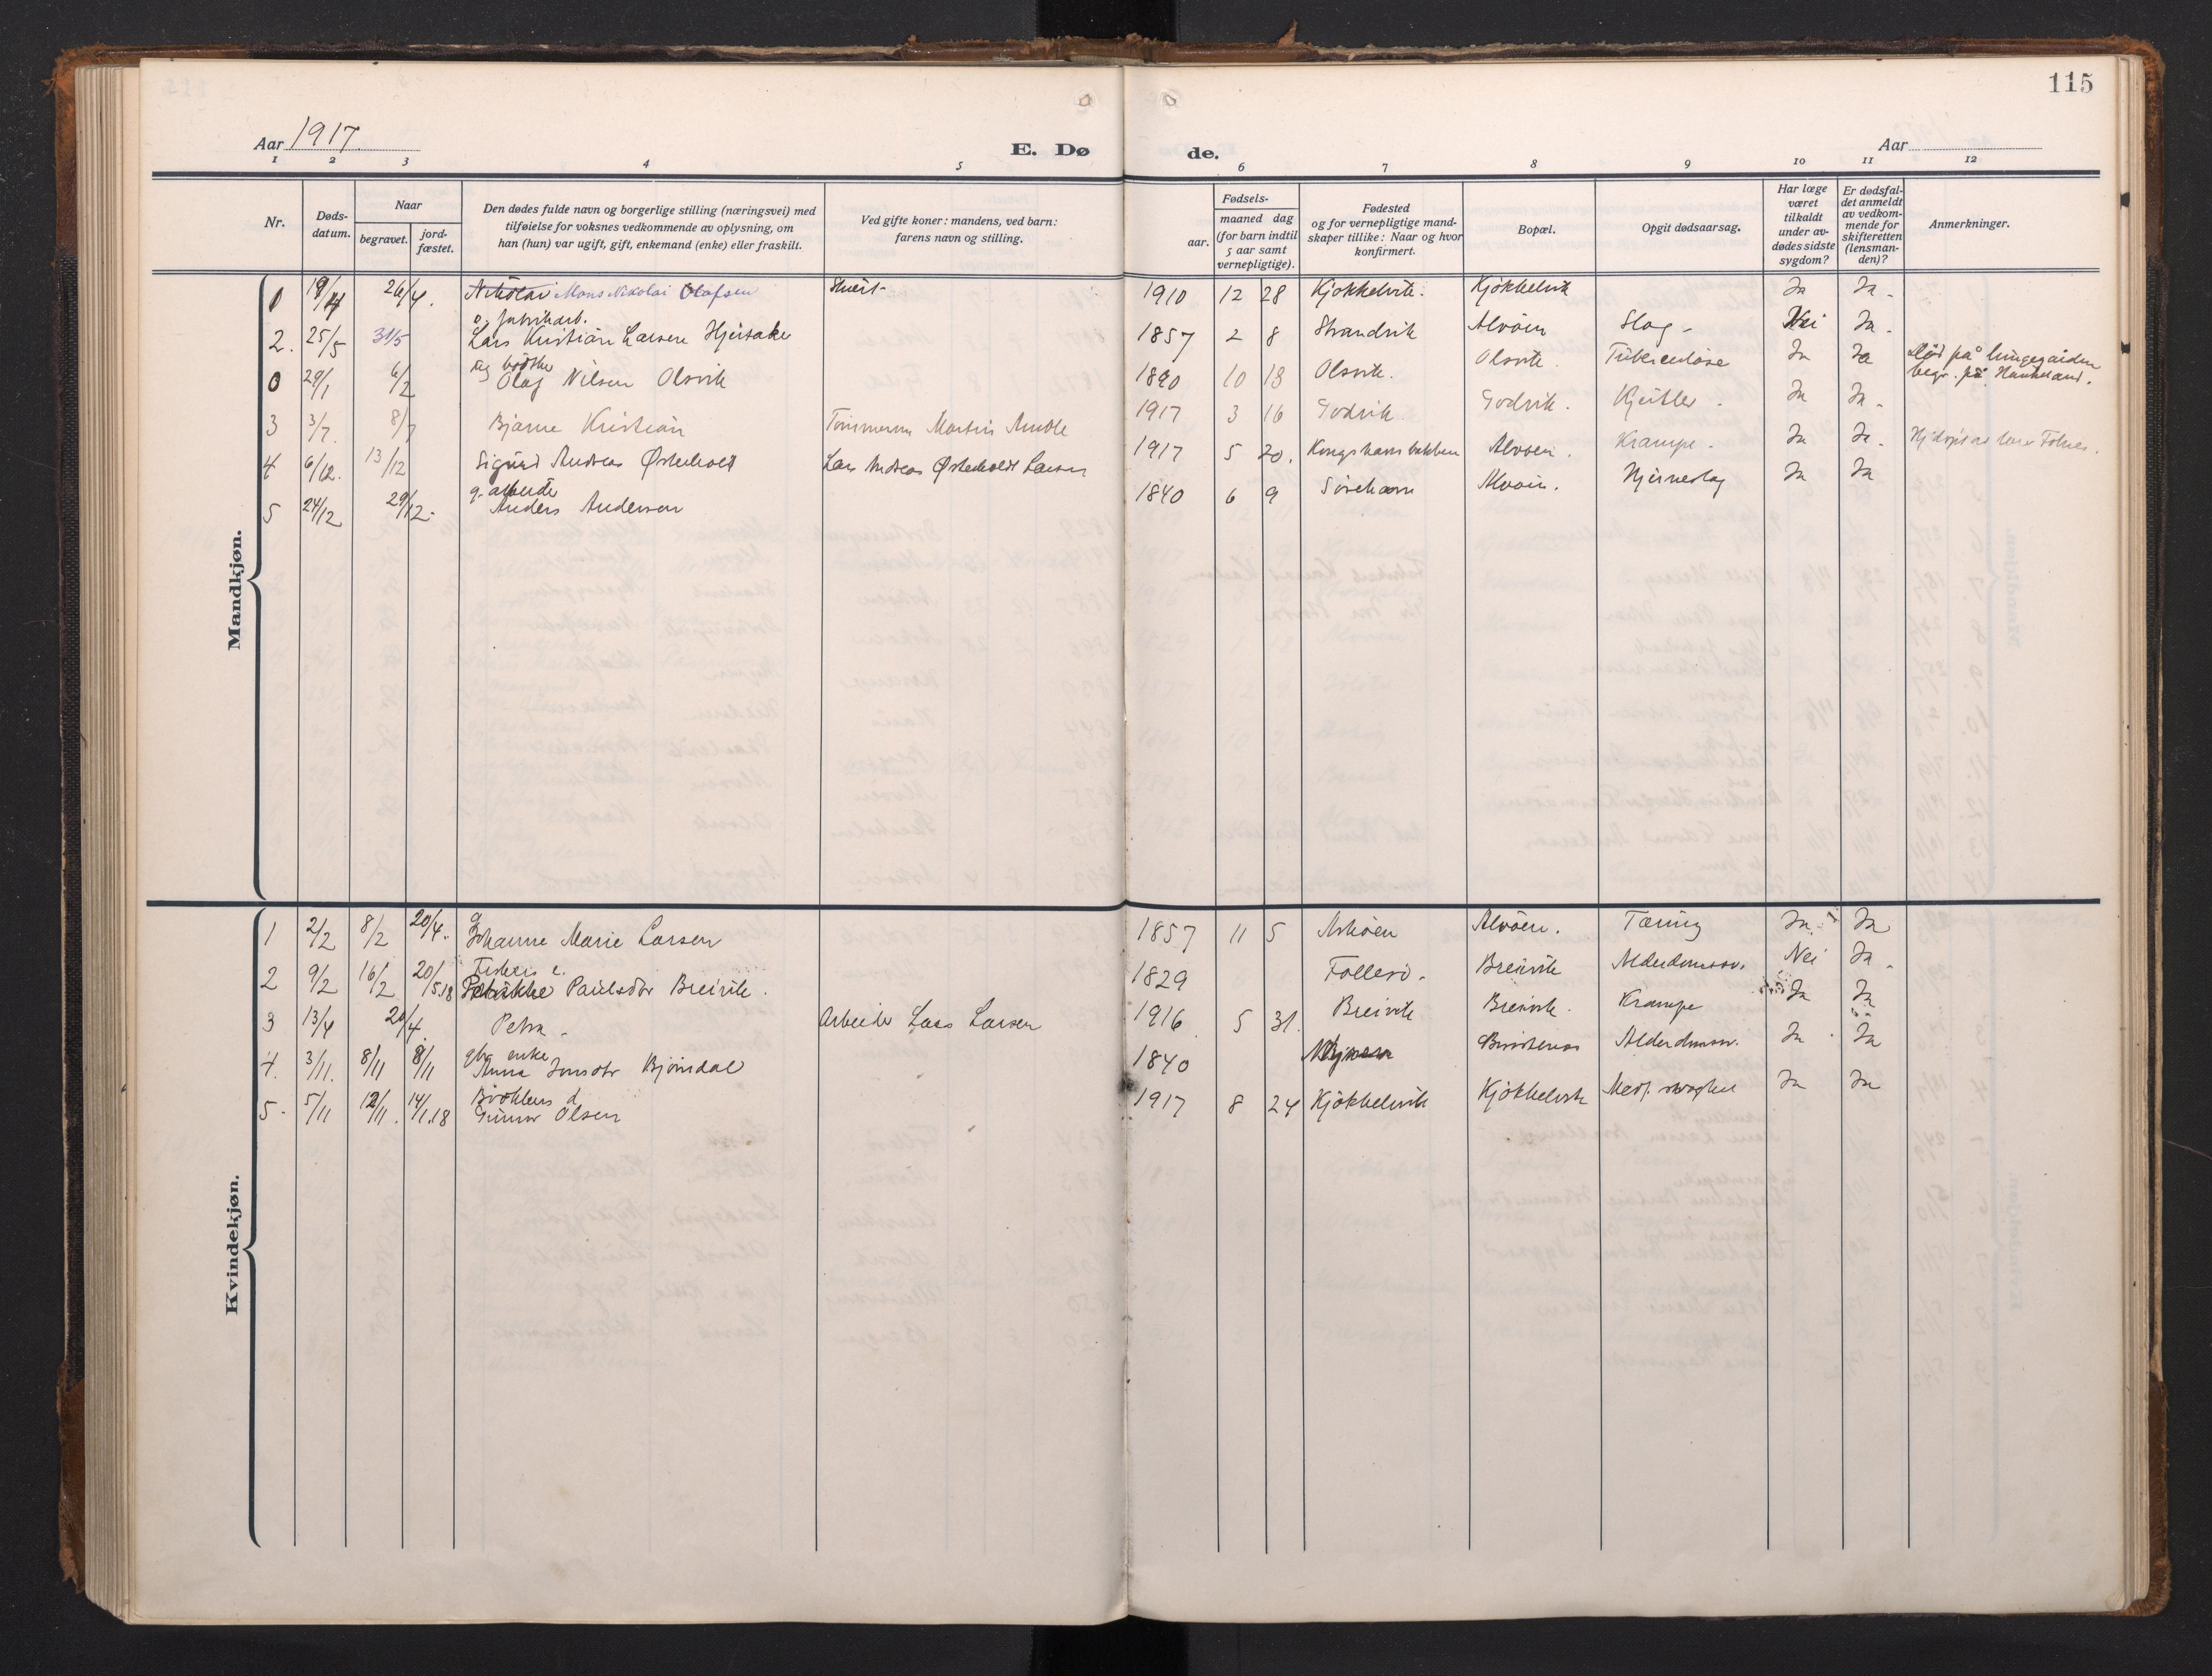 115
Aar 1917.
E. Dø de.
Aar
1 2 3 4 5 6 7 8 9 10 11 12
Nr.
Døds-datum.
Naar
begravet.
jord-fæstet.
Den dødes fulde navn og borgerlige stilling (næringsvei) med
tilføielse for voksnes vedkommende av oplysning, om
han (hun) var ugift, gift, enkemand (enke) eller fraskilt.
Ved gifte koner: mandens, ved barn:
farens navn og stilling.
Fødsels-
aar. maaned dag
(for barn indtil
5 aar samt
vernepligtige).
Fødested
og for vernepligtige mand-
skaper tillike: Naar og hvor
konfirmert.
Bopæl.
Opgit dødsaarsag.
Har læge
været
tilkaldt
under av-
dødes sidste
sygdom?
Er dødsfal-
det anmeldt
av vedkom-
mende for
skifteretten
(lensman-
den)?
Anmerkninger.
Mandkjøn.
0 19/4 26/4. Mons Nikolai Olafsen 1910 12 28 Kjøkkelvik. Kjøkkelvik Ja Ja.
fabrikarb.
2. 25/5 31/5 Lars Kristian Larsen 1857 2 8 Strandvik Alvøen Slag - Nei Ja.
0 29/1 6/2 Olaf Nilsen Olsvik 1890 10 13 Olsvik. Olsvik Ja Ja Død på
begr. på Haukeland.
3 3/7. 8/7 Bjarne Kristian Martin 1917 3 16 Godvik Godvik. Ja Ja.
4 6/12. 13/12 Sigurd Andreas Østerholt Lars Andreas Østerholt Larsen 1917 5 20. Alvøen. Krampe. Ja Ja.
g. arbeider
5 24/12 29/12. Anders Andersen 1840 6 9 Alvøen. Hjerneslag Ja Ja
Kvindekjøn.
1 2/2 8/2 20/4. g Johanne Marie Larsen 1857 11 5 Askøen Alvøen. Tæring Ja. Ja
2 9/2 16/2 20/5.18 Paulsdtr Breivik. 1829 Breivik Nei Ja.
3 13/4 20/4. Petra - Arbeider Lars Larsen 1916 5 31. Breivik Breivik. Krampe Ja Ja
enke
4. 3/11. 8/11 8/11 Anna Jonsdtr Bjørndal 1840 Ja Ja
5. 5/11 12/11. 14/1.18 Gunvor Olsen 1917 8 24 Kjøkkelvik Kjøkkelvik Ja Ja